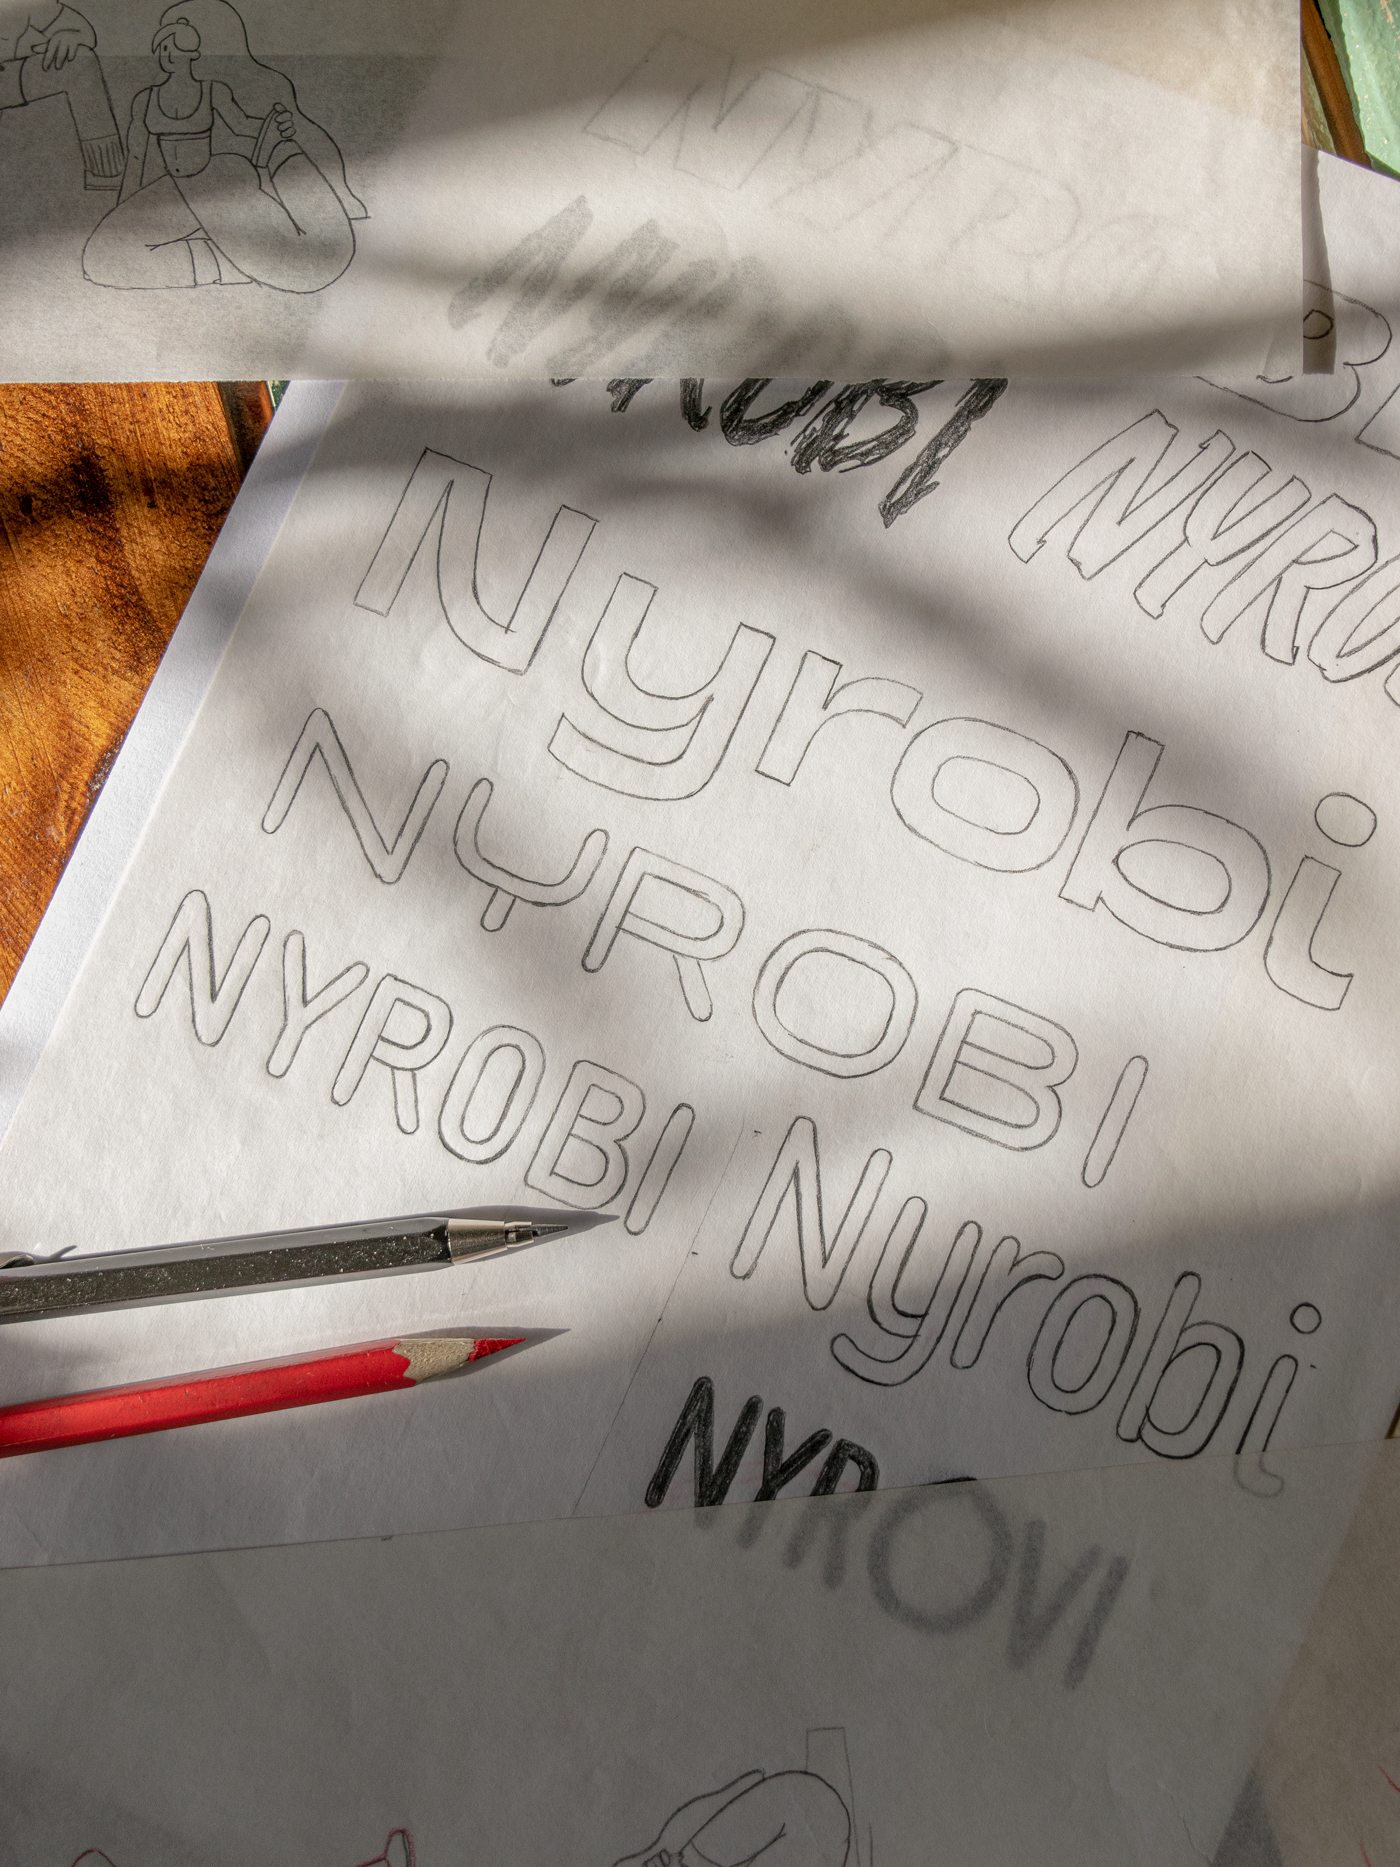 NYRO
NYROBI
BI
NYRO
Nyrobi
NYROBI
NYROBI
Nyrobi
NYROVI